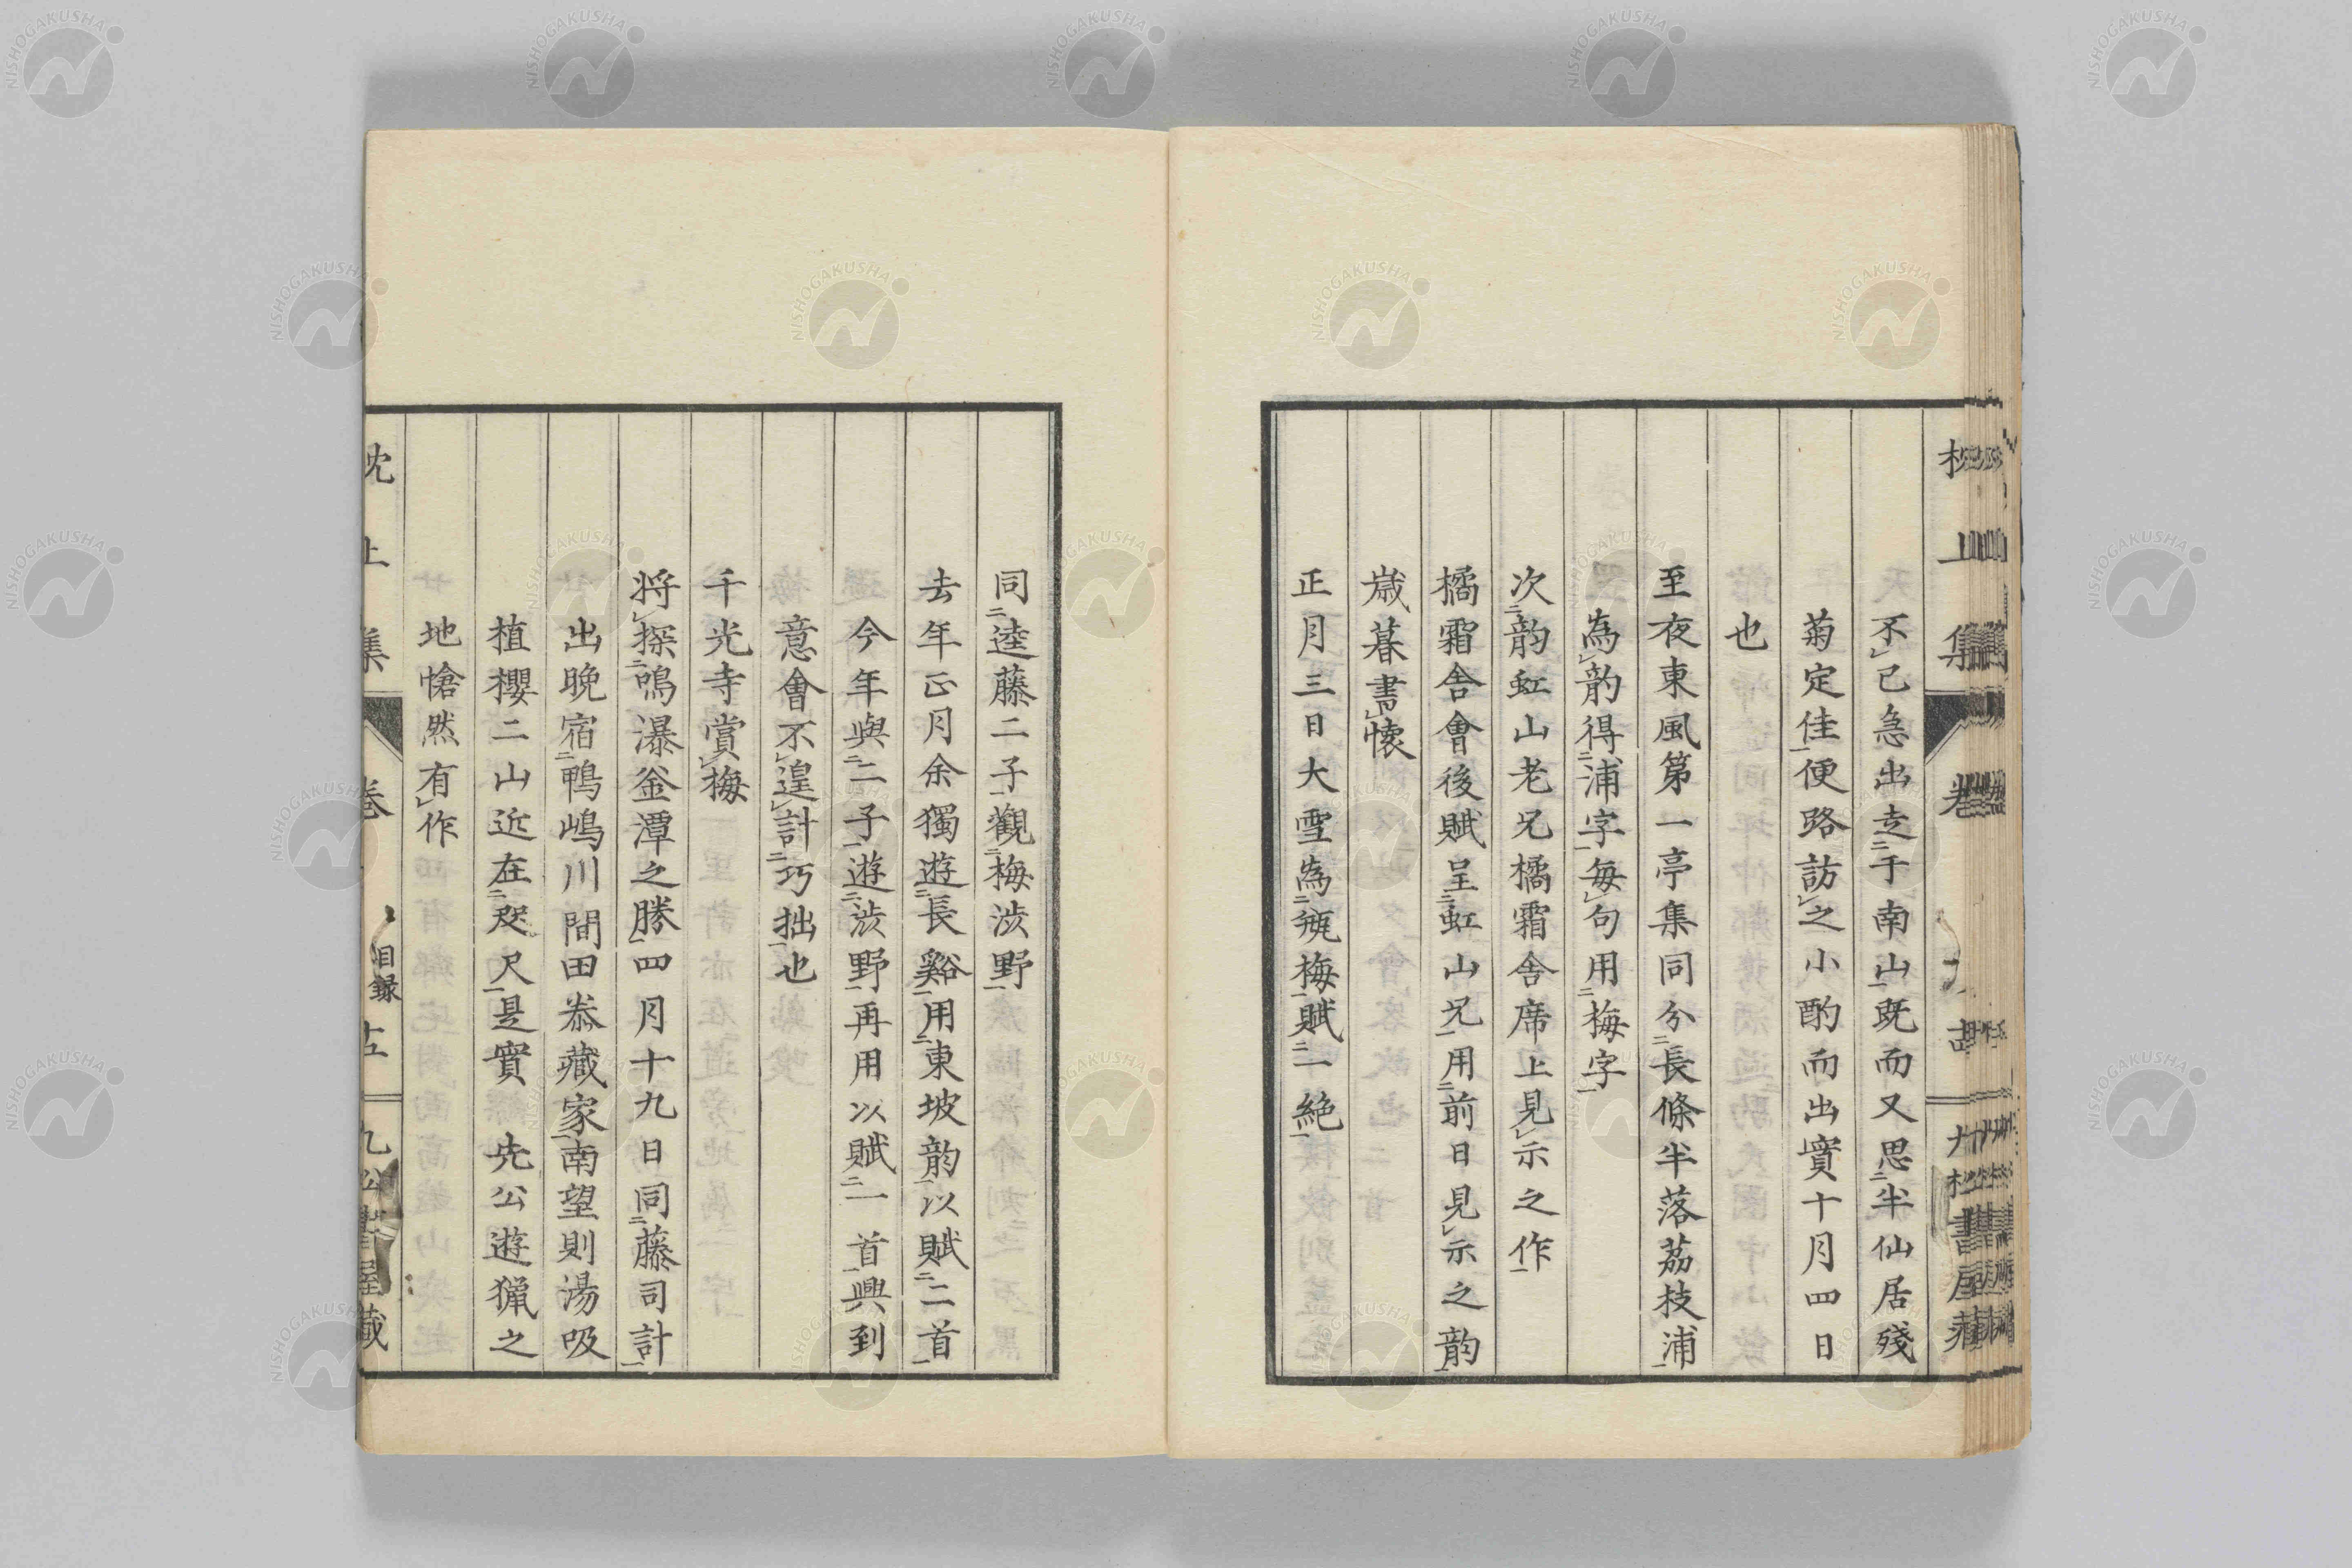 不已急出走于南山既而又思半仙居殘
菊定佳便路訪之小酌而出實十月四日
也
至夜東風第一亭集同分長條半落荔技浦
為韵得浦字每句用梅字
次韵虹山老兄橘霜舎席上見示之作
橘霜舎會後賦呈虹山兄用前日見示之韵
歳暮書懐
正月三日大雪為瓶梅賦一絶
同逵藤二子觀梅渋野
去年正月余獨遊長谿用東坡韵以賦二首
今年與二子遊渋野再用以賦一首興到
意會不遑計巧拙也
千光寺賞梅
将探鳴瀑釜潭之勝四月十九日同藤司計
出晩宿鴨嶋川間田恭藏家南望則湯吸
植櫻二山近在咫尺是實 先公遊猟之
地愴然有作
枕上集 卷 目録 十五 九松書屋藏
NISHOGAKUSHA